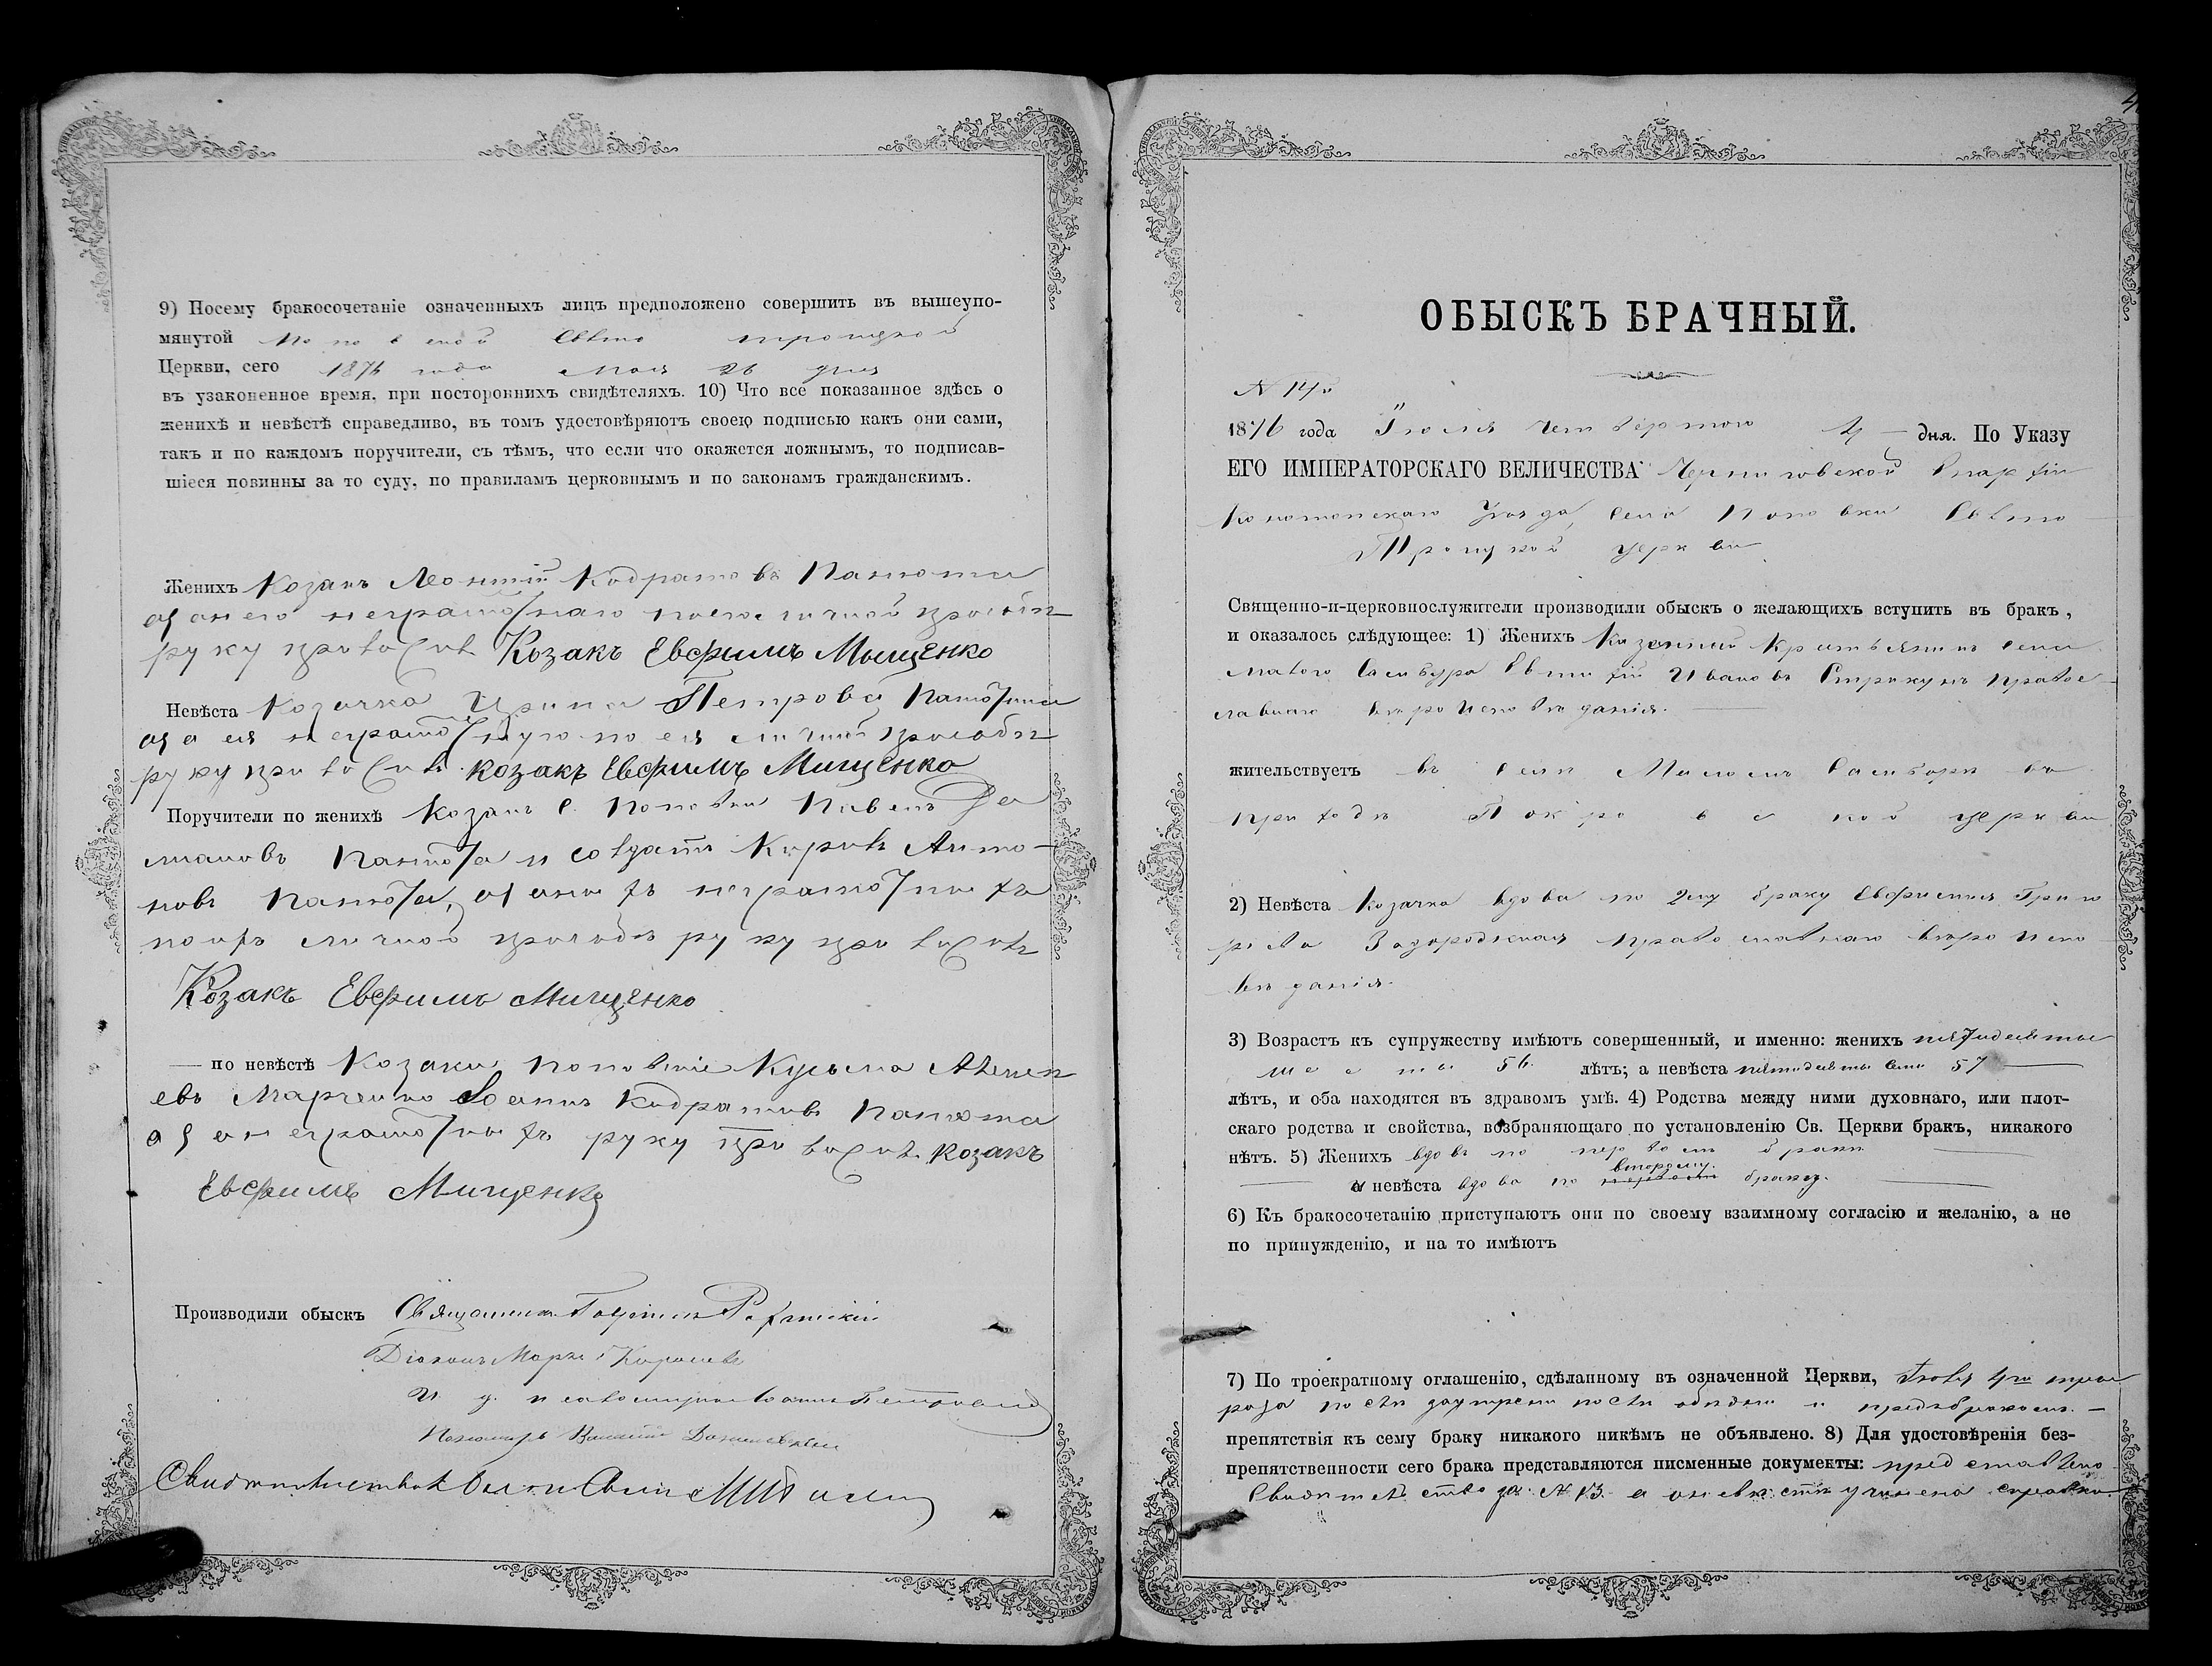 9) Посему бракосочетаніе означенныхъ лицъ предположено совершить въ вышеупо-
мянутой Поповской Свято Троицкой
Церкви, сего 1876 года Мая 26 дня
въ узаконенное время, при постороннихъ свидѣтеляхъ. 10) Что все показанное здѣсь о
женихѣ и невѣстѣ справедливо, въ томъ удостовѣряютъ своею подписью какъ они сами,
такъ и по каждомъ поручители, съ тѣмъ, что если что окажется ложнымъ, то подписав-
шіеся повинны за то суду, по правиламъ церковнымъ и по законамъ гражданскимъ.
Женихъ Козакъ Леонтій Кодратовъ Панюта
а за него неграмотнаго по его личной прозьби
руку приложилъ Козакъ Евфимъ Мищенко
Невѣста Козачка Ирина Петрова
а за ея неграмотную по ея личной прозьби
руку приложилъ Козакъ Евфимъ Мищенко
Поручители по женихѣ Козакъ с. Поповки Павелъ Де
мяновъ Панюта и солдатъ Кирилъ Анто-
новъ Панюта, а за нихъ неграмотныхъ
по ихъ личной прозьби руку приложилъ
Козакъ Евфимъ Мищенко
— по невѣстѣ Козаки Поповскіе Кузьма Алексѣ
евъ Марченко Кодратовъ Панюта
а за неграмотныхъ руку приложилъ Козакъ
Евфимъ Мищенко
Производили обыскъ Священникъ
Діаконъ Марко
И. д. псаломщика Іоаннъ
Пономарь
ОБЫСКЪ БРАЧНЫЙ.
N 14й
1876 года Іюля четвертого 4 — дня. По Указу
ЕГО ИМПЕРАТОРСКАГО ВЕЛИЧЕСТВА Черниговской Епархіи
Конотопскаго Уѣзда, села Поповки Свято
Троицкой церкви
Священно-и-церковнослужители производили обыскъ о желающихъ вступить въ бракъ,
и оказалось слѣдующее: 1) Женихъ Казенный Крестьянинъ села
Малого Самбура Евтихій Ивановъ Стрикунъ Правос-
лавнаго вѣроисповѣданія.
жительствуетъ въ селѣ Маломъ Самборѣ въ
приходѣ Покровской церкви
2) Невѣста Козачка вдова по 2му браку Евфимія Григо
рьева Загородская Православнаго вѣроиспо
вѣданія.
3) Возрастъ къ супружеству имѣютъ совершенный, и именно: женихъ пятидесяты
шести 56 лѣтъ; а невѣста пятидесяты семи 57
лѣтъ, и оба находятся въ здравомъ умѣ. 4) Родства между ними духовнаго, или плот-
скаго родства и свойства, возбраняющаго по установленію Св. Церкви бракъ, никакого
нѣтъ. 5) Женихъ вдовъ по первомъ бракѣ
второму.
а невѣста вдова по браку.
6) Къ бракосочетанію приступаютъ они по своему взаимному согласію и желанію, а не
по принужденію, и на то имѣютъ
7) По троекратному оглашенію, сдѣланному въ означенной Церкви, Іюля 4го три
раза послѣ заутрени послѣ обѣдни и предъ бракомъ. —
препятствія къ сему браку никакого никѣмъ не объявлено. 8) Для удостовѣренія без-
препятственности сего брака представляются писменные документы: представлено
Свидѣтельство за N 13. а о невѣсти учинена справка.